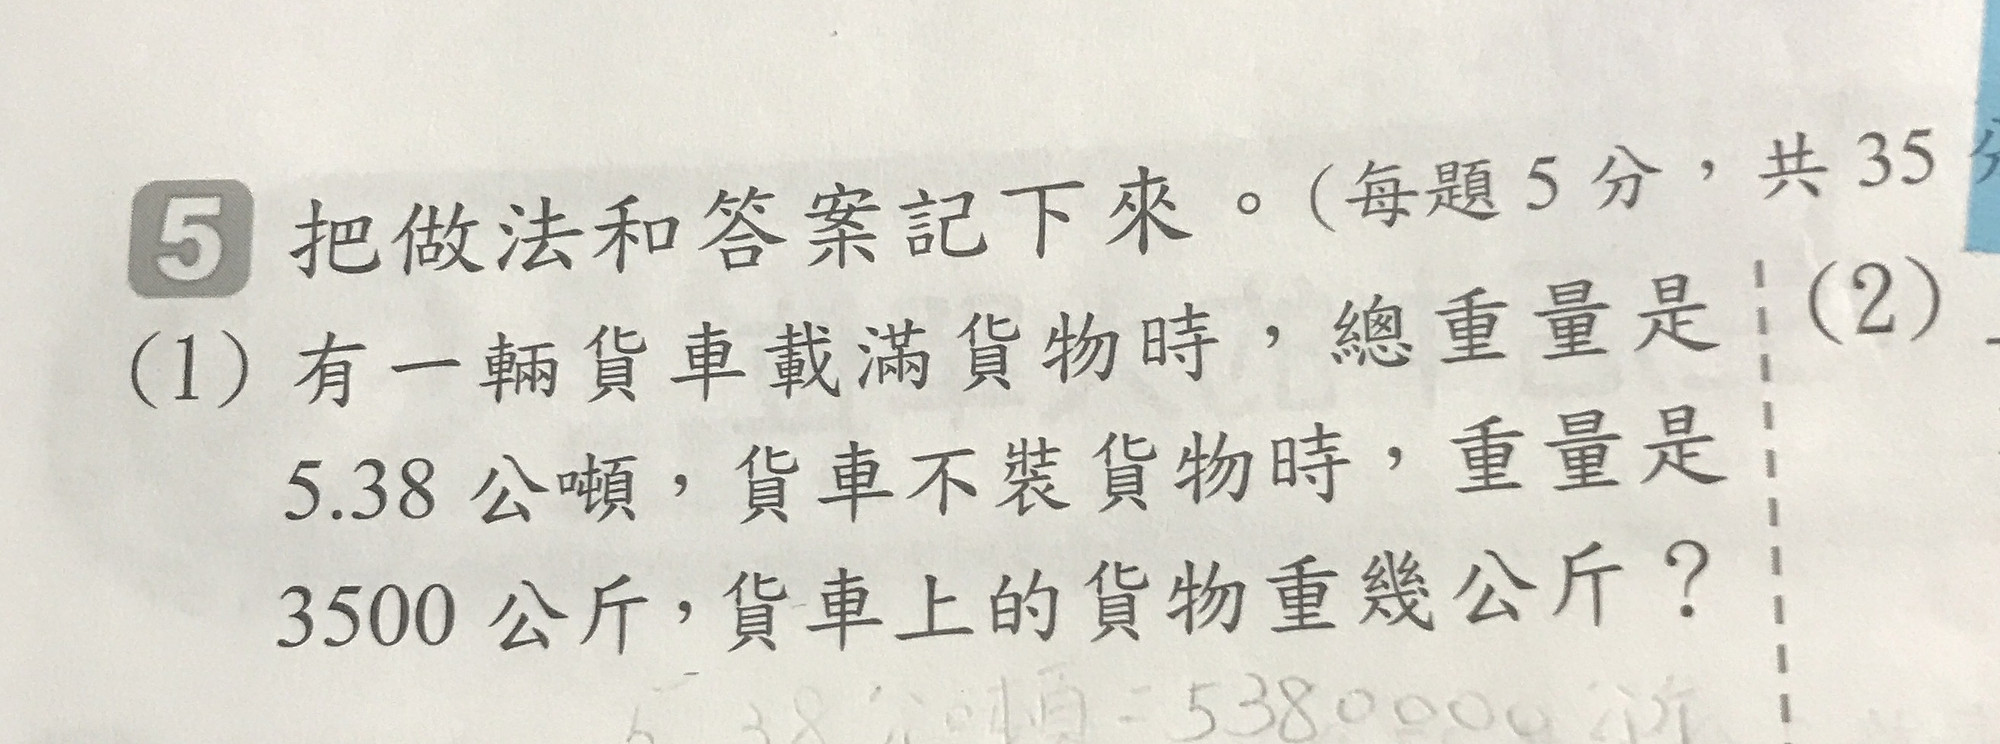 5 把做法和答案記下來。(每題5分，共35分
(1) 有一輛貨車載滿貨物時，總重量是
5.38 公噸，貨車不裝貨物時，重量是
3500 公斤，貨車上的貨物重幾公斤？
5.38公噸=5380000
(2)